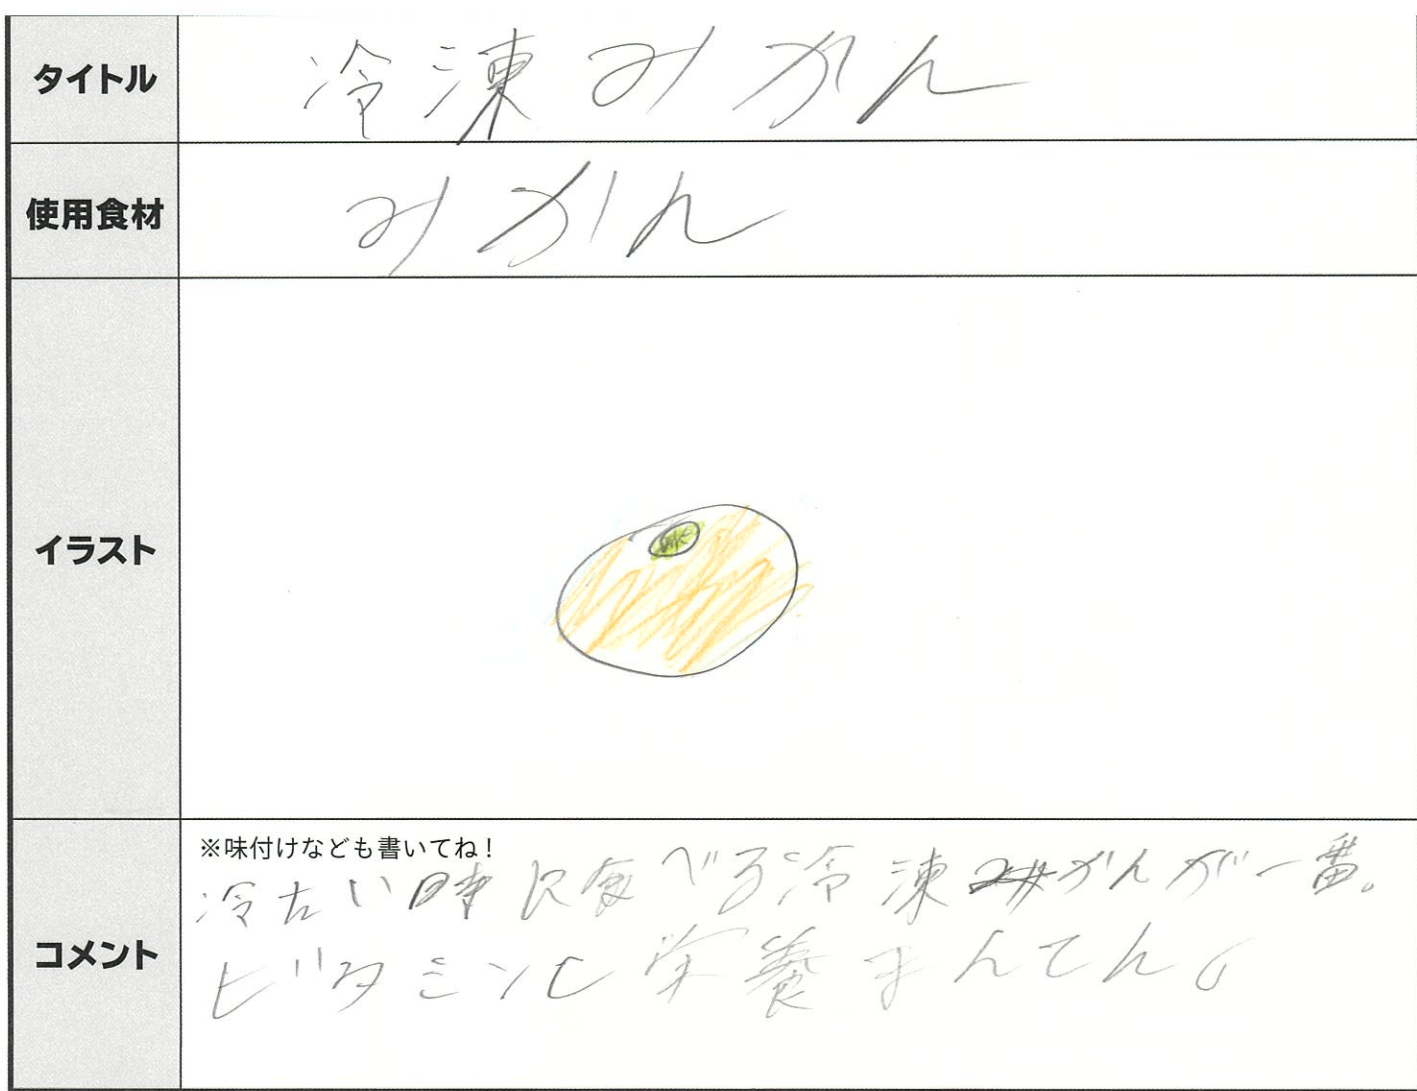 タイトル
冷凍みかん
使用食材
みかん
イラスト
コメント
※味付けなども書いてね！
冷たい時に食べる冷凍みかんが一番。
ビタミンC栄養まんてん。